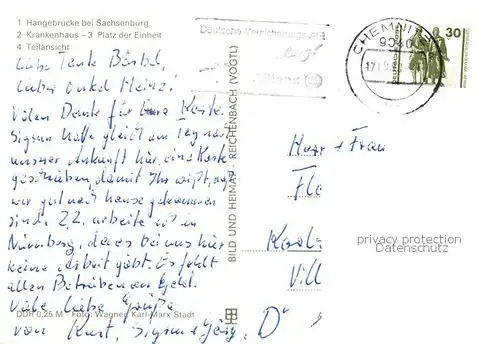 1 Hängebrücke bei Sachsenburg
2 Krankenhaus – 3 Platz der Einheit
4 Teilansicht
Liebe Tante Bärbel,
lieber Onkel Heinz!
Vielen Dank für Eure Karte.
Sigrun hatte gleich am Tag nach
unserer Ankunft hier, eine Karte
geschrieben, damit Ihr wißt, daß
wir gut nach hause gekommen
sind. Z.Z. arbeite ich in
Nürnberg, da es bei uns hier
keine Arbeit gibt. Es fehlt
allen Betrieben am Geld.
Viele liebe Grüße
von Kurt, Sigrun +
DDR 0,25 M Foto: Wagner, Karl-Marx-Stadt
BILD UND HEIMAT REICHENBACH (VOGTL)
Deutsche
CHEMNITZ
30
Herr + Frau
Flo
privacy protection
Datenschutz
Vill
D